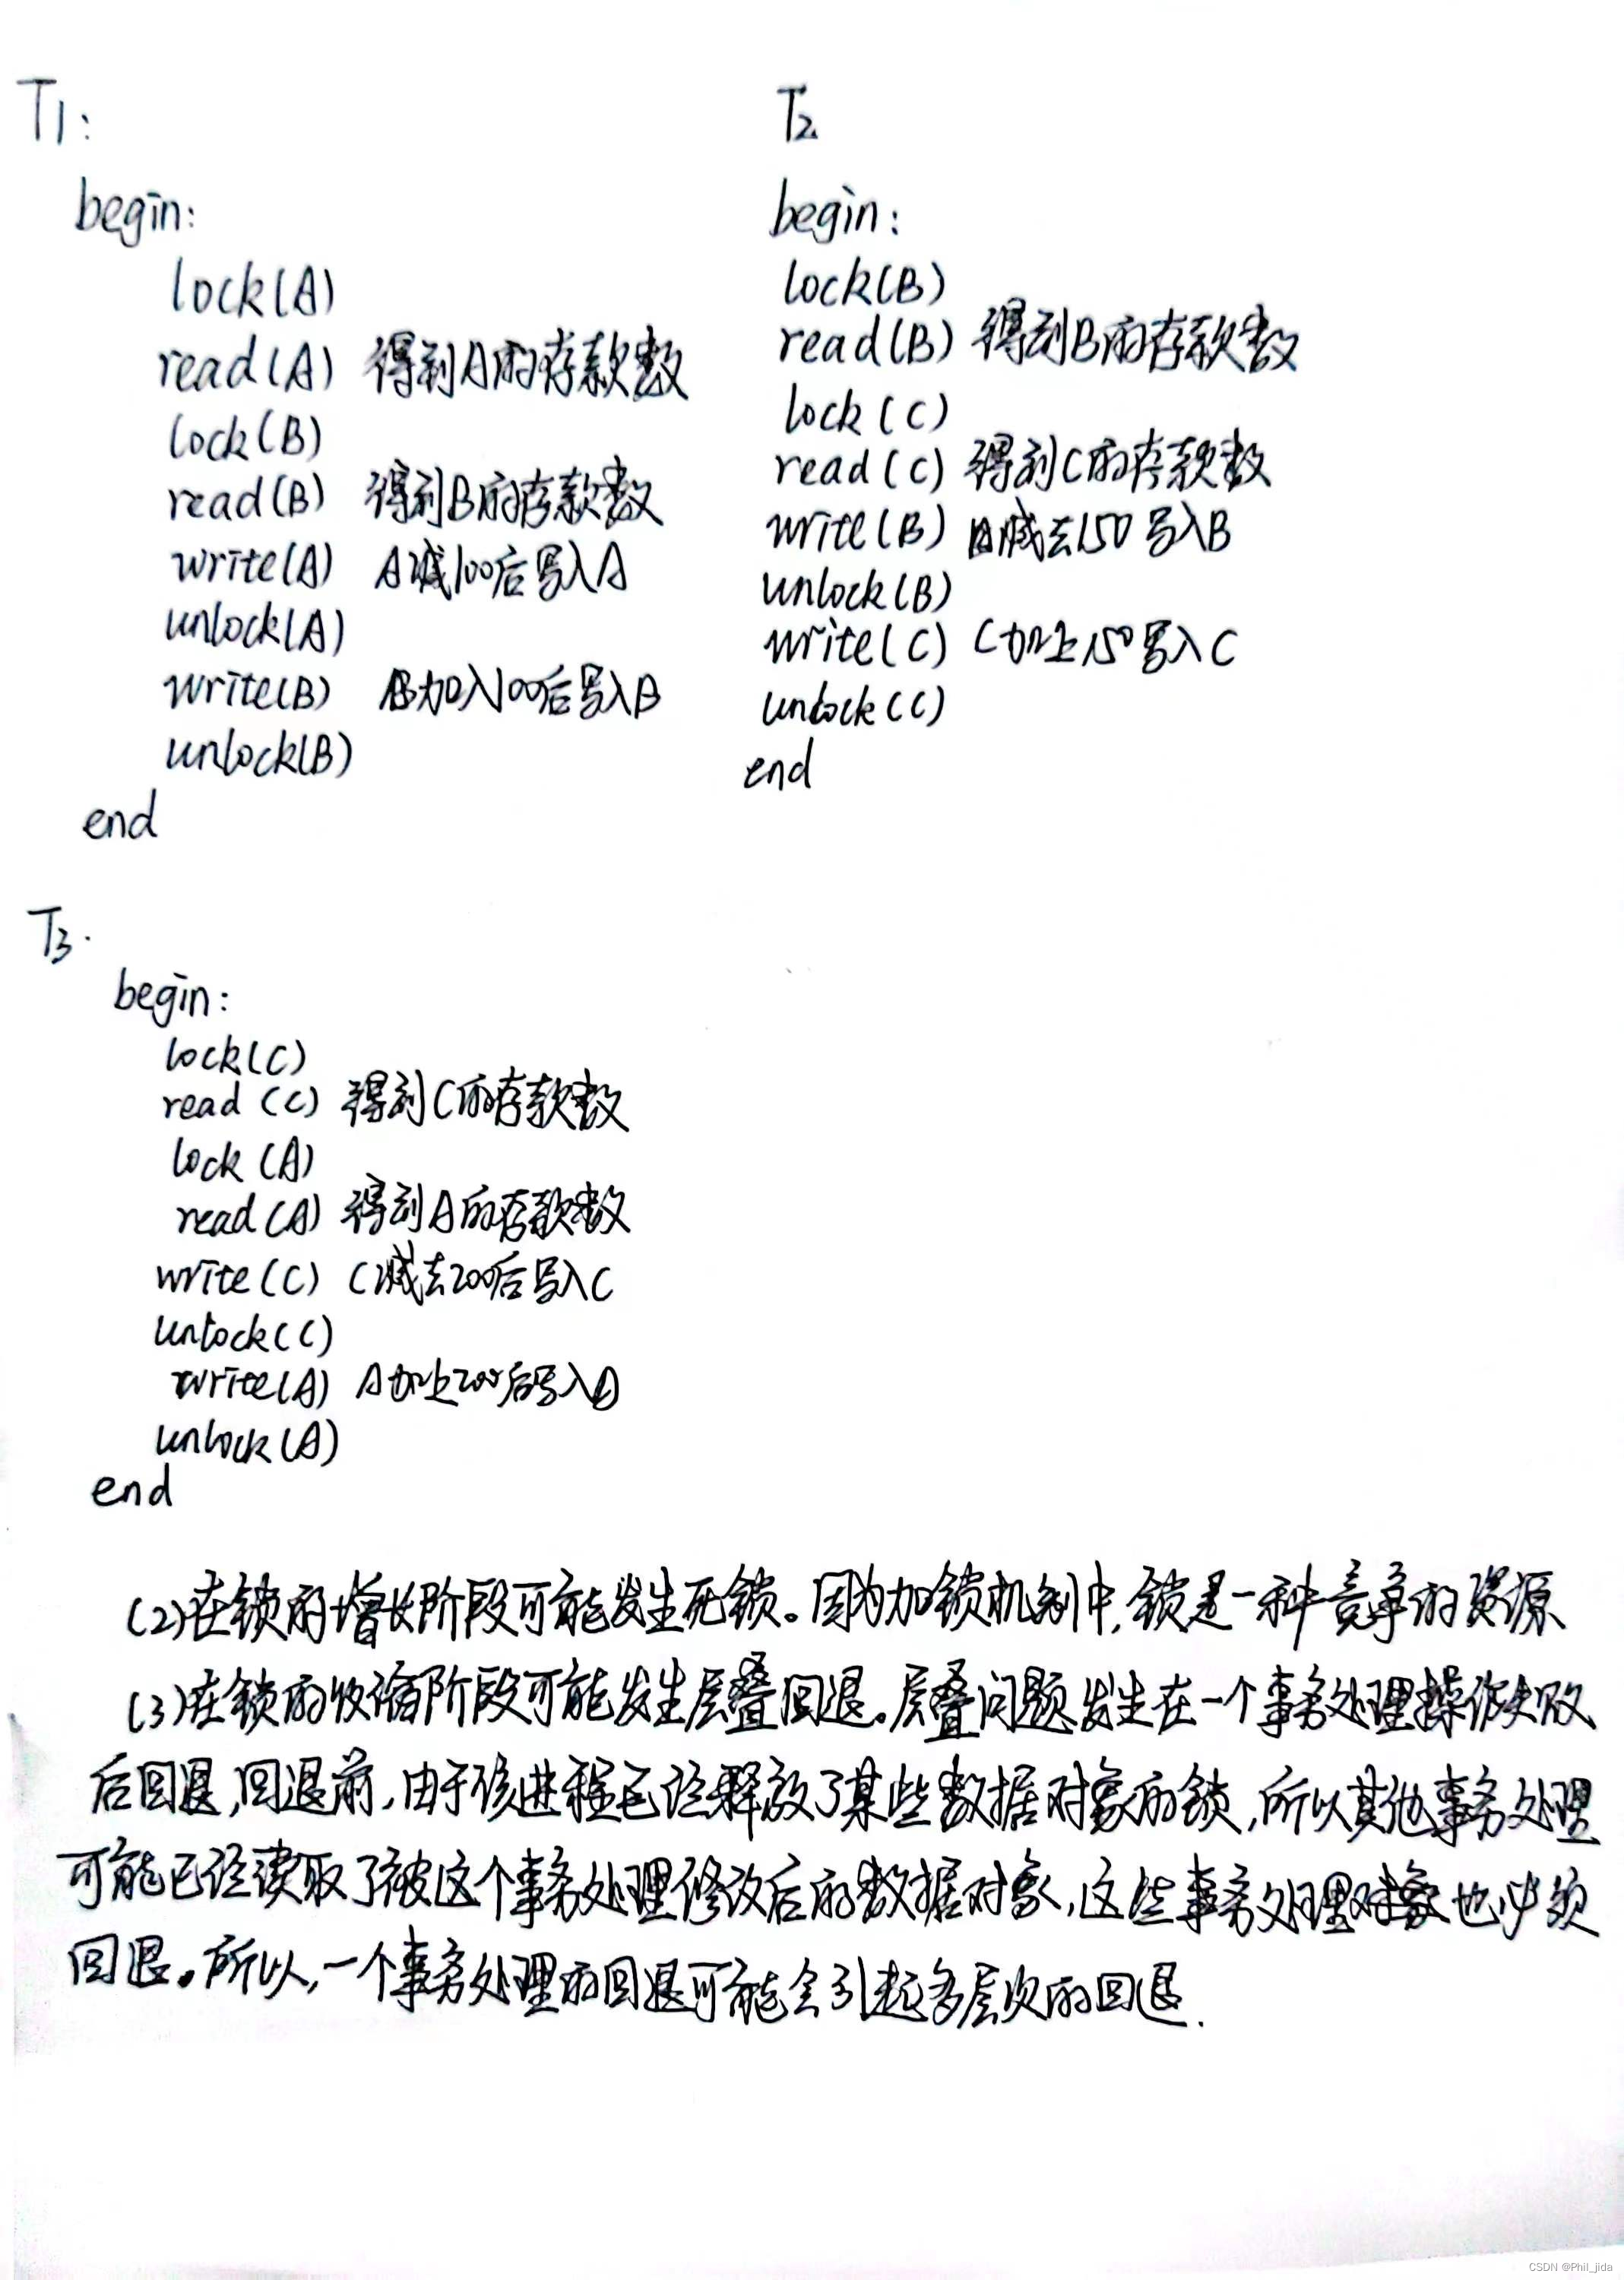 T1:
begin:
lock(A)
read(A) 得到A的存款数
lock(B)
read(B) 得到B的存款数
write(A) A减100后写入A
unlock(A)
write(B) B加入100后写入B
unlock(B)
end
T2
begin:
lock(B)
read(B) 得到B的存款数
lock(C)
read(C) 得到C的存款数
write(B) 减去150写入B
unlock(B)
write(C) C加上150写入C
unlock(C)
end
T3.
begin:
lock(C)
read(C) 得到C的存款数
lock(A)
read(A) 得到A的存款数
write(C) C减去200后写入C
unlock(C)
write(A) A加上200后写入A
unlock(A)
end
(2)在锁的增长阶段可能发生死锁。因为加锁机制中,锁是一种竞争的资源
(3)在锁的收缩阶段可能发生层叠回退。层叠问题发生在一个事务处理操作失败
后回退,回退前,由于该进程已经释放了某些数据对象的锁,所以其他事务处理
可能已经读取了被这个事务处理修改后的数据对象,这些事务处理对象也必须
回退。所以,一个事务处理的回退可能会引起多层次的回退.
CSDN @Phil_jida